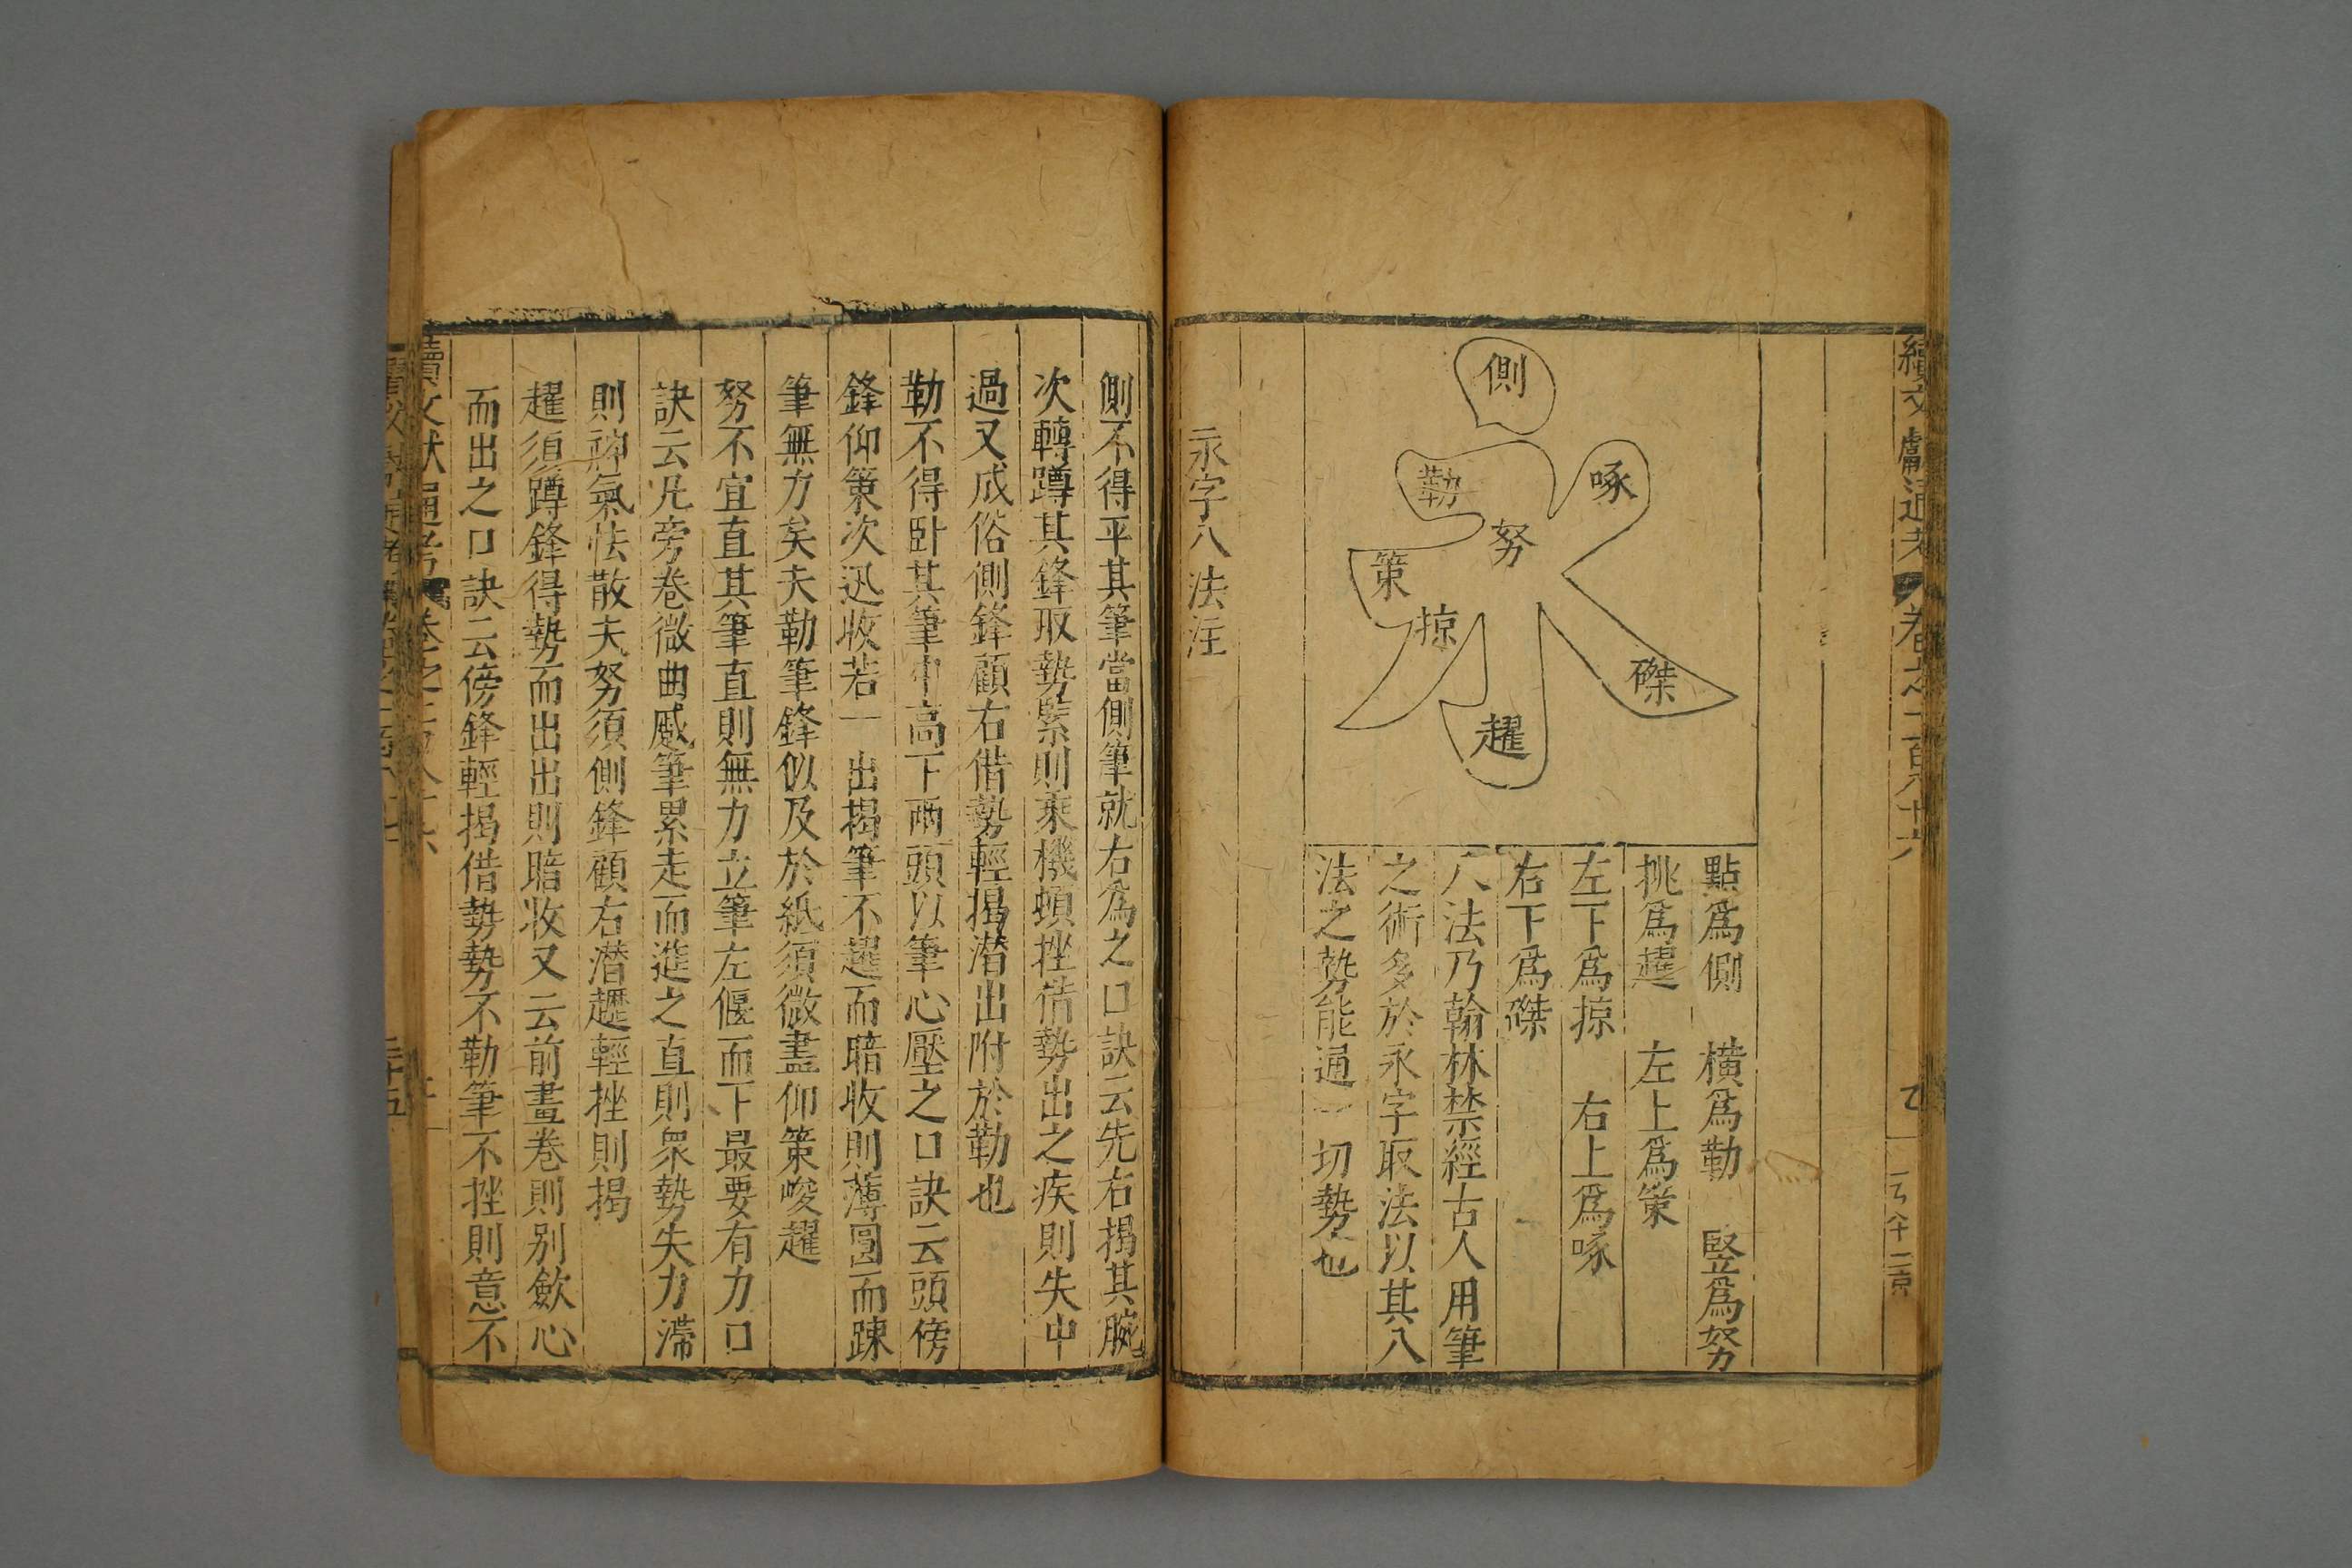 續文獻通考
卷之一百八十六
側
勒
啄
努
策
掠
磔
趯
點爲側 橫爲勒 竪爲努
挑爲趯 左上爲策
左下爲掠 右上爲啄
右下爲磔
八法乃翰林禁經古人用筆
之術多於永字取法以其八
法之勢能通一切勢也
永字八法注
側不得平其筆當側筆就右爲之口訣云先右揭其腕
次轉蹲其鋒取勢緊則乘機頓挫借勢出之疾則失中
過又成俗側鋒顧右借勢輕揭潛出附於勒也
勒不得卧其筆中高下兩頭以筆心壓之口訣云頭傍
鋒仰策次迅收若一出揭筆不趯而暗收則薄圓而踈
筆無力矣夫勒筆鋒似及於紙須微盡仰策峻趯
努不宜直其筆直則無力立筆左偃而下最要有力口
訣云凡旁卷微曲蹙筆累走而進之直則衆勢失力滯
則神氣怯散夫努須側鋒顧右潛趯輕挫則揭
趯須蹲鋒得勢而出出則暗收又云前畫卷則别歛心
而出之口訣云傍鋒輕揭借勢勢不勒筆不挫則意不
續文獻通考